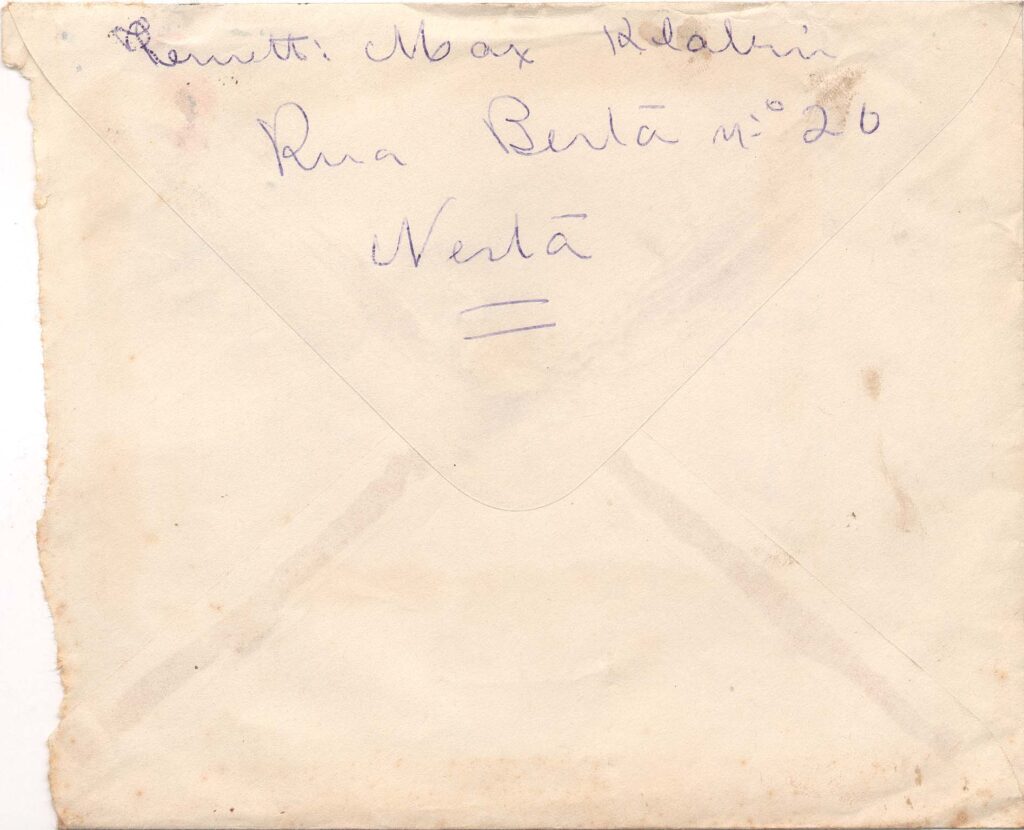 Remett: Max Klabin
Rua Bertā n:º 20
Nestā